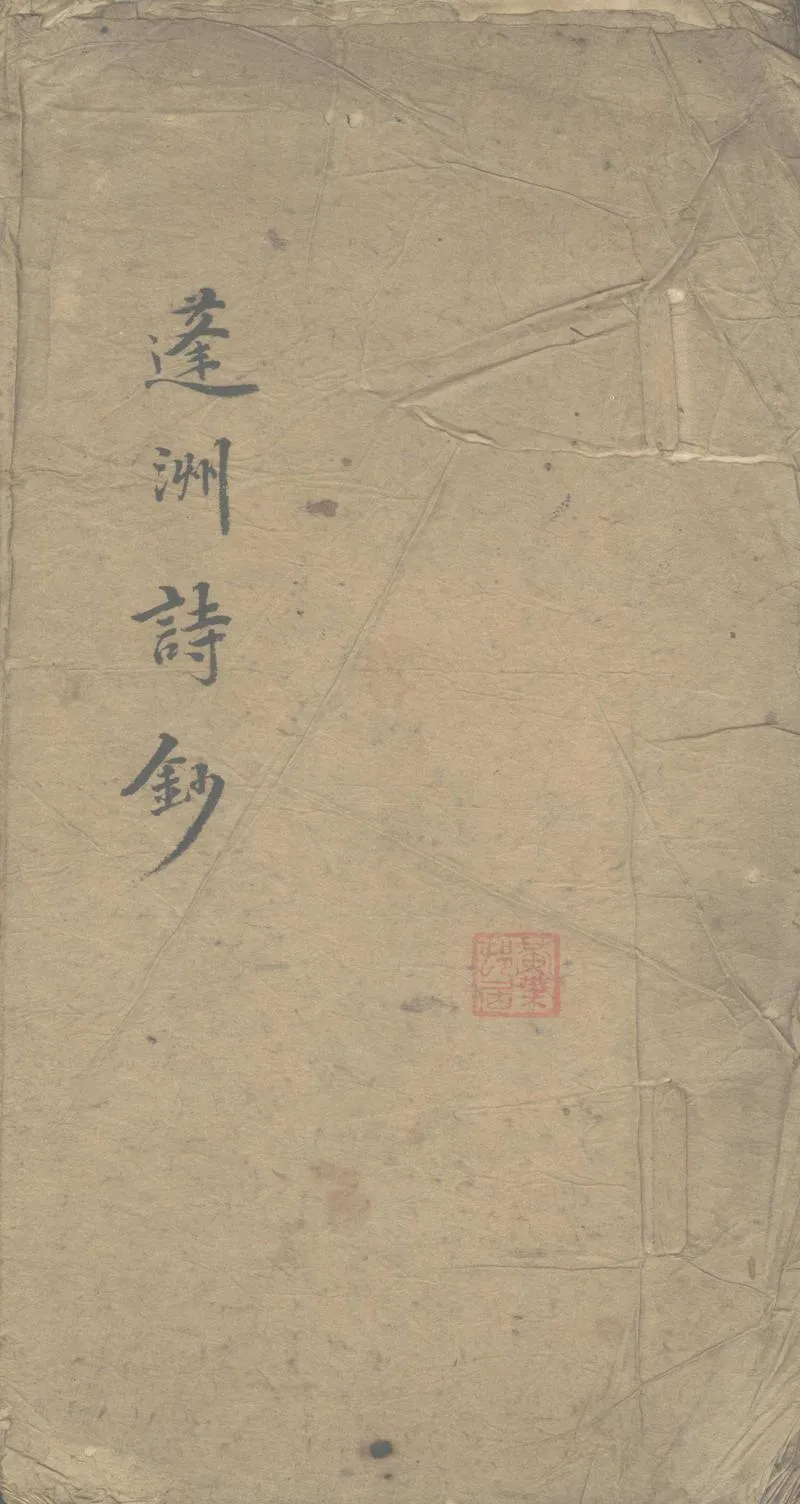 蓬洲詩鈔